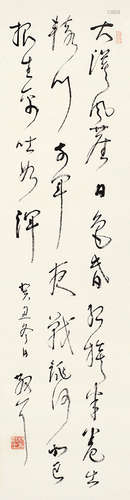 大漠風塵日色昏紅旗半卷出
轅門前軍夜戰洮河北已
報生擒吐谷渾
癸丑冬日散耳